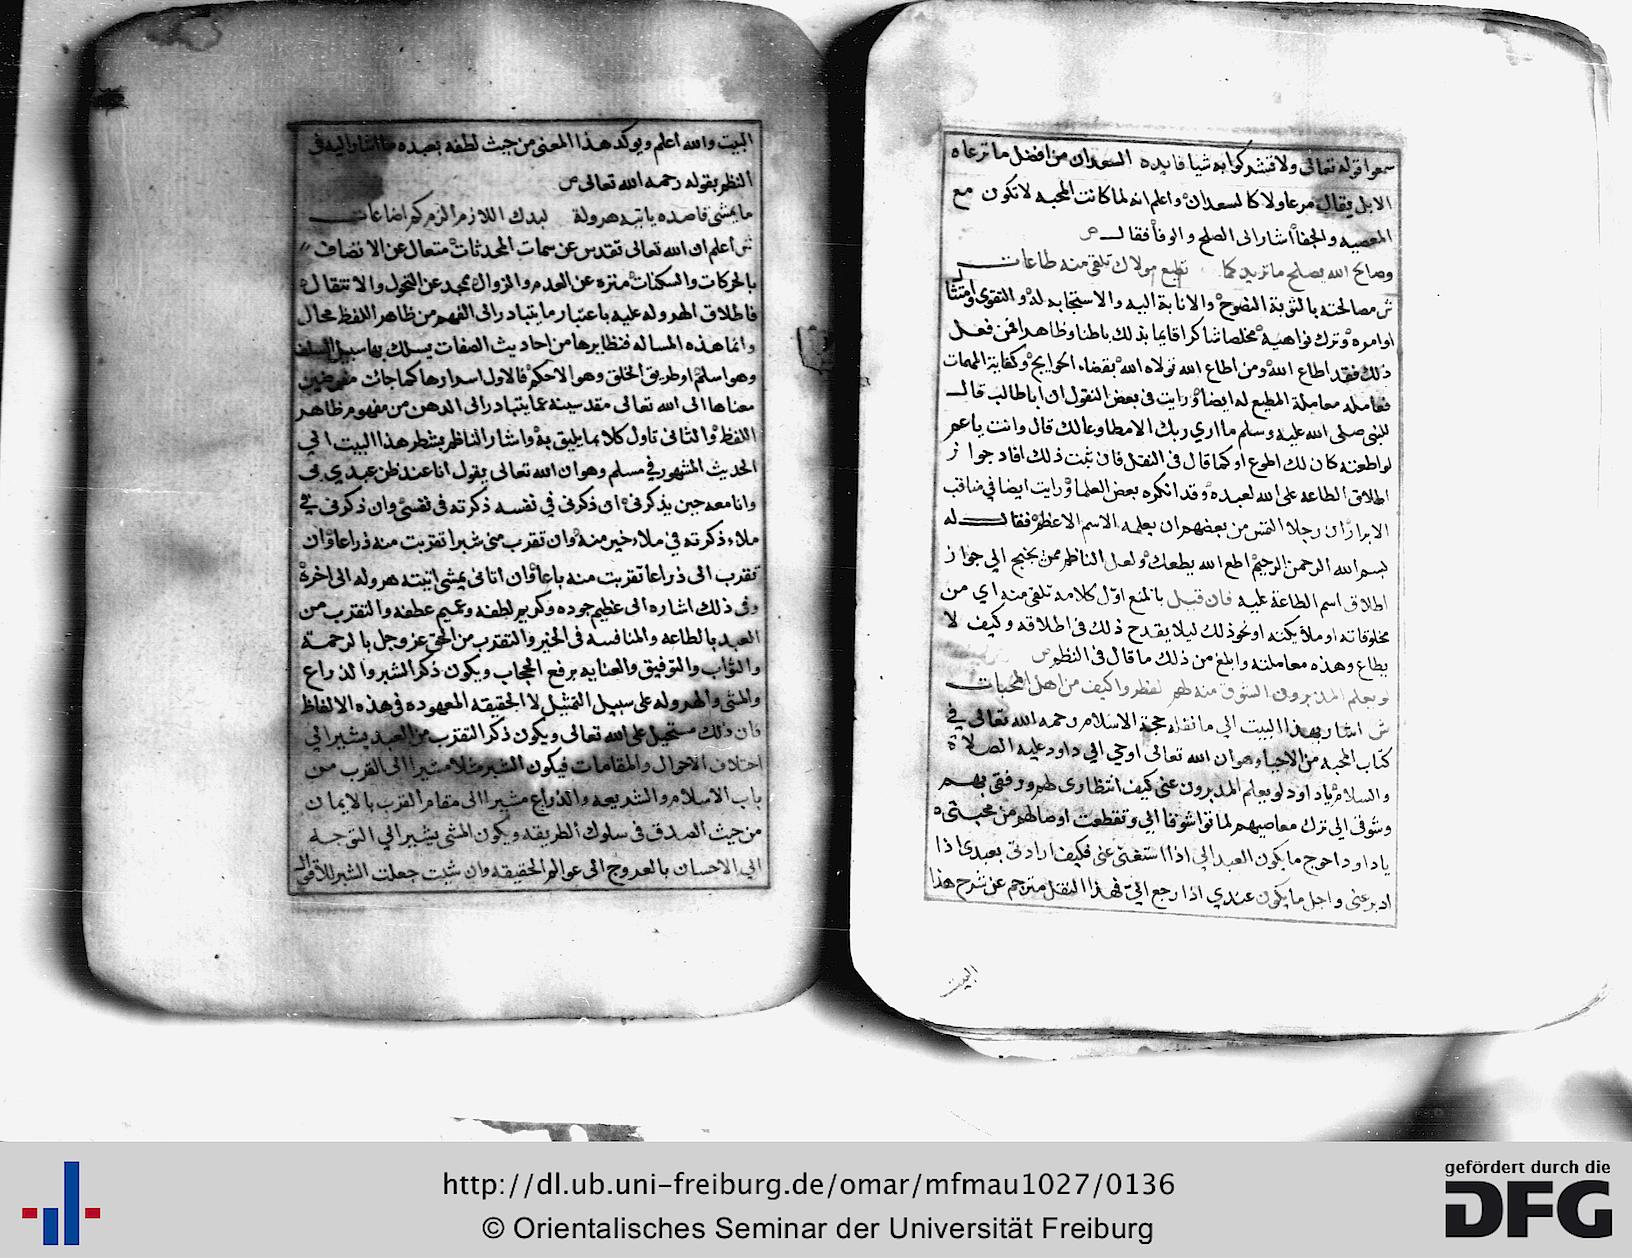 سمعوا قوله تعالى ولا تشركوا به شيا فايده السعدان من افضل ما ترعاه
الابل يقال مرعا ولا كالسعدان واعلم انه لما كانت المحبه لا تكون مع
المعصيه والجفا اشار الى الصلح والوفا فقال ص
وصالح الله يصلح ما تريد كما تطيع مولاك تلقى منه طاعات
ش مصالحته بالتوبة النصوح والانابة اليه والاستجابه له والتقوى وامتثا
اوامره وترك نواهيه مخلصا شاكرا قايما بذلك باطنا وظاهرا فمن فعل
ذلك فقد اطاع الله ومن اطاع الله تولاه الله بقضاء الحوايج وكفاية المهمات
فعامله معاملة المطيع له ايضا ورايت في بعض النقول ان اباطالب قال
للنبي صلى الله عليه وسلم ما اري ربك الا مطاوعا لك قال وانت يا عم
لو اطعته كان لك اطوع او كما قال في النقل فان ثبت ذلك افاد جواز
اطلاق الطاعه على الله لعبده وقد انكره بعض العلما ورايت ايضا في مناقب
الابرار ان رجلا التمس من بعضهم ان يعلمه الاسم الاعظم فقال له
بسم الله الرحمن الرحيم اطع الله يطعك ولعل الناظم ممن يجنح الي جواز
اطلاق اسم الطاعة عليه فان قيل بالمنع اوّل كلامه تلقى منه اي من
مخلوقاته او ملأيكته او نحو ذلك ليلا يقدح ذلك في اطلاقه وكيف لا
يطاع وهذه معاملته وابلغ من ذلك ما قال في النظم ص
لو يعلم المدبرون الشوق منه لهم لفطروا كيف من اهل المحبات
ش اشار بهذا البيت الي ما نقله حجة الاسلام رحمه الله تعالى في
كتاب المحبه من الاحياء وهو ان الله تعالى اوحي الي داود عليه الصلاة
والسلام ياداود لو يعلم المدبرون عني كيف انتظارى لهم ورفقي بهم
وشوقى الي ترك معاصيهم لماتوا شوقا الي وتقطعت اوصالهم من محبتى
ياداود احوج ما يكون العبد الي اذا استغنى عني فكيف ارادتي بعبدي اذا
ادبر عني واجل ما يكون عندي اذا رجع اليّ فهذا النقل مترجم عن شرح هذا
البيت
البيت والله اعلم ويوكد هذا المعنى من حيث لطفه بعبده ما اشار اليه في
النظم بقوله رحمه الله تعالى ص
ما يمشى قاصده ياتيه هرولة لبدك اللازم الزم كم اضاعات
ش اعلم ان الله تعالى تقدس عن سمات المحدثات متعال عن الاتصاف
بالحركات والسكنات منزه عن العدم والزوال ممجد عن التحول والانتقال
فاطلاق الهروله عليه باعتبار ما يتبادر الى الفهم من ظاهر اللفظ محال
وانما هذه المساله فنظايرها من احاديث الصفات يسلك بها سبيل السلف
وهو اسلم او طريق الخلق وهو الاحكم فالاول اسرارها كما جات مفوضين
معناها الى الله تعالى مقدسينه عما يتبادر الى الذهن من مفهوم ظاهر
اللفظ والثاني تاول كلا بما يليق به واشار الناظم بشطر هذا البيت الي
الحديث المشهور في مسلم وهو ان الله تعالى يقول انا عند ظن عبدي بي
وانا معه حين يذكرني ان ذكرنى في نفسه ذكرته في نفسي وان ذكرنى في
ملاء ذكرته في ملاء خير منه وان تقرب مني شبرا تقربت منه ذراعا وان
تقرب الى ذراعا تقربت منه باعا وان اتاني يمشي اتيته هروله الى اخره
وفي ذلك اشاره الى عظيم جوده وكريم لطفه وعميم عطفه والتقرب من
العبد بالطاعه والمنافسه في الخير والتقرب من الحق عز وجل بالرحمة
والثواب والتوفيق والعنايه برفع الحجاب ويكون ذكر الشبر والذراع
والمشى والهروله على سبيل التمثيل لا الحقيقه المعهوده في هذه الالفاظ
فان ذلك مستحيل على الله تعالى ويكون ذكر التقرب من العبد يشير الي
اختلاف الاحوال والمقامات فيكون الشبر مثلا مشيرا الى القرب من
باب الاسلام والشريعه والذراع مشيرا الى مقام القرب بالايمان
من حيث الصدق في سلوك الطريقه ويكون المشى يشير الي التوجه
الي الاحسان بالعروج الى عوالم الحقيقه وان شيت جعلت الشبر للاقوال
http://dl.ub.uni-freiburg.de/omar/mfmau1027/0136
© Orientalisches Seminar der Universität Freiburg
gefördert durch die
DFG